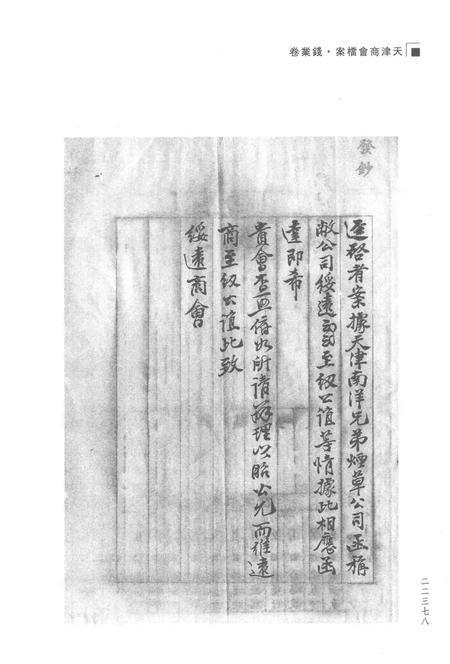 天津商會檔案·錢業卷
發鈔
逕啓者案據天津南洋兄弟煙草公司函稱
敝公司綏遠云云至紉公誼等情據此相應函
達即希
貴會查照俯如所請辦理以昭公允而維遠
商至紉公誼此致
綏遠商會
二二三七八